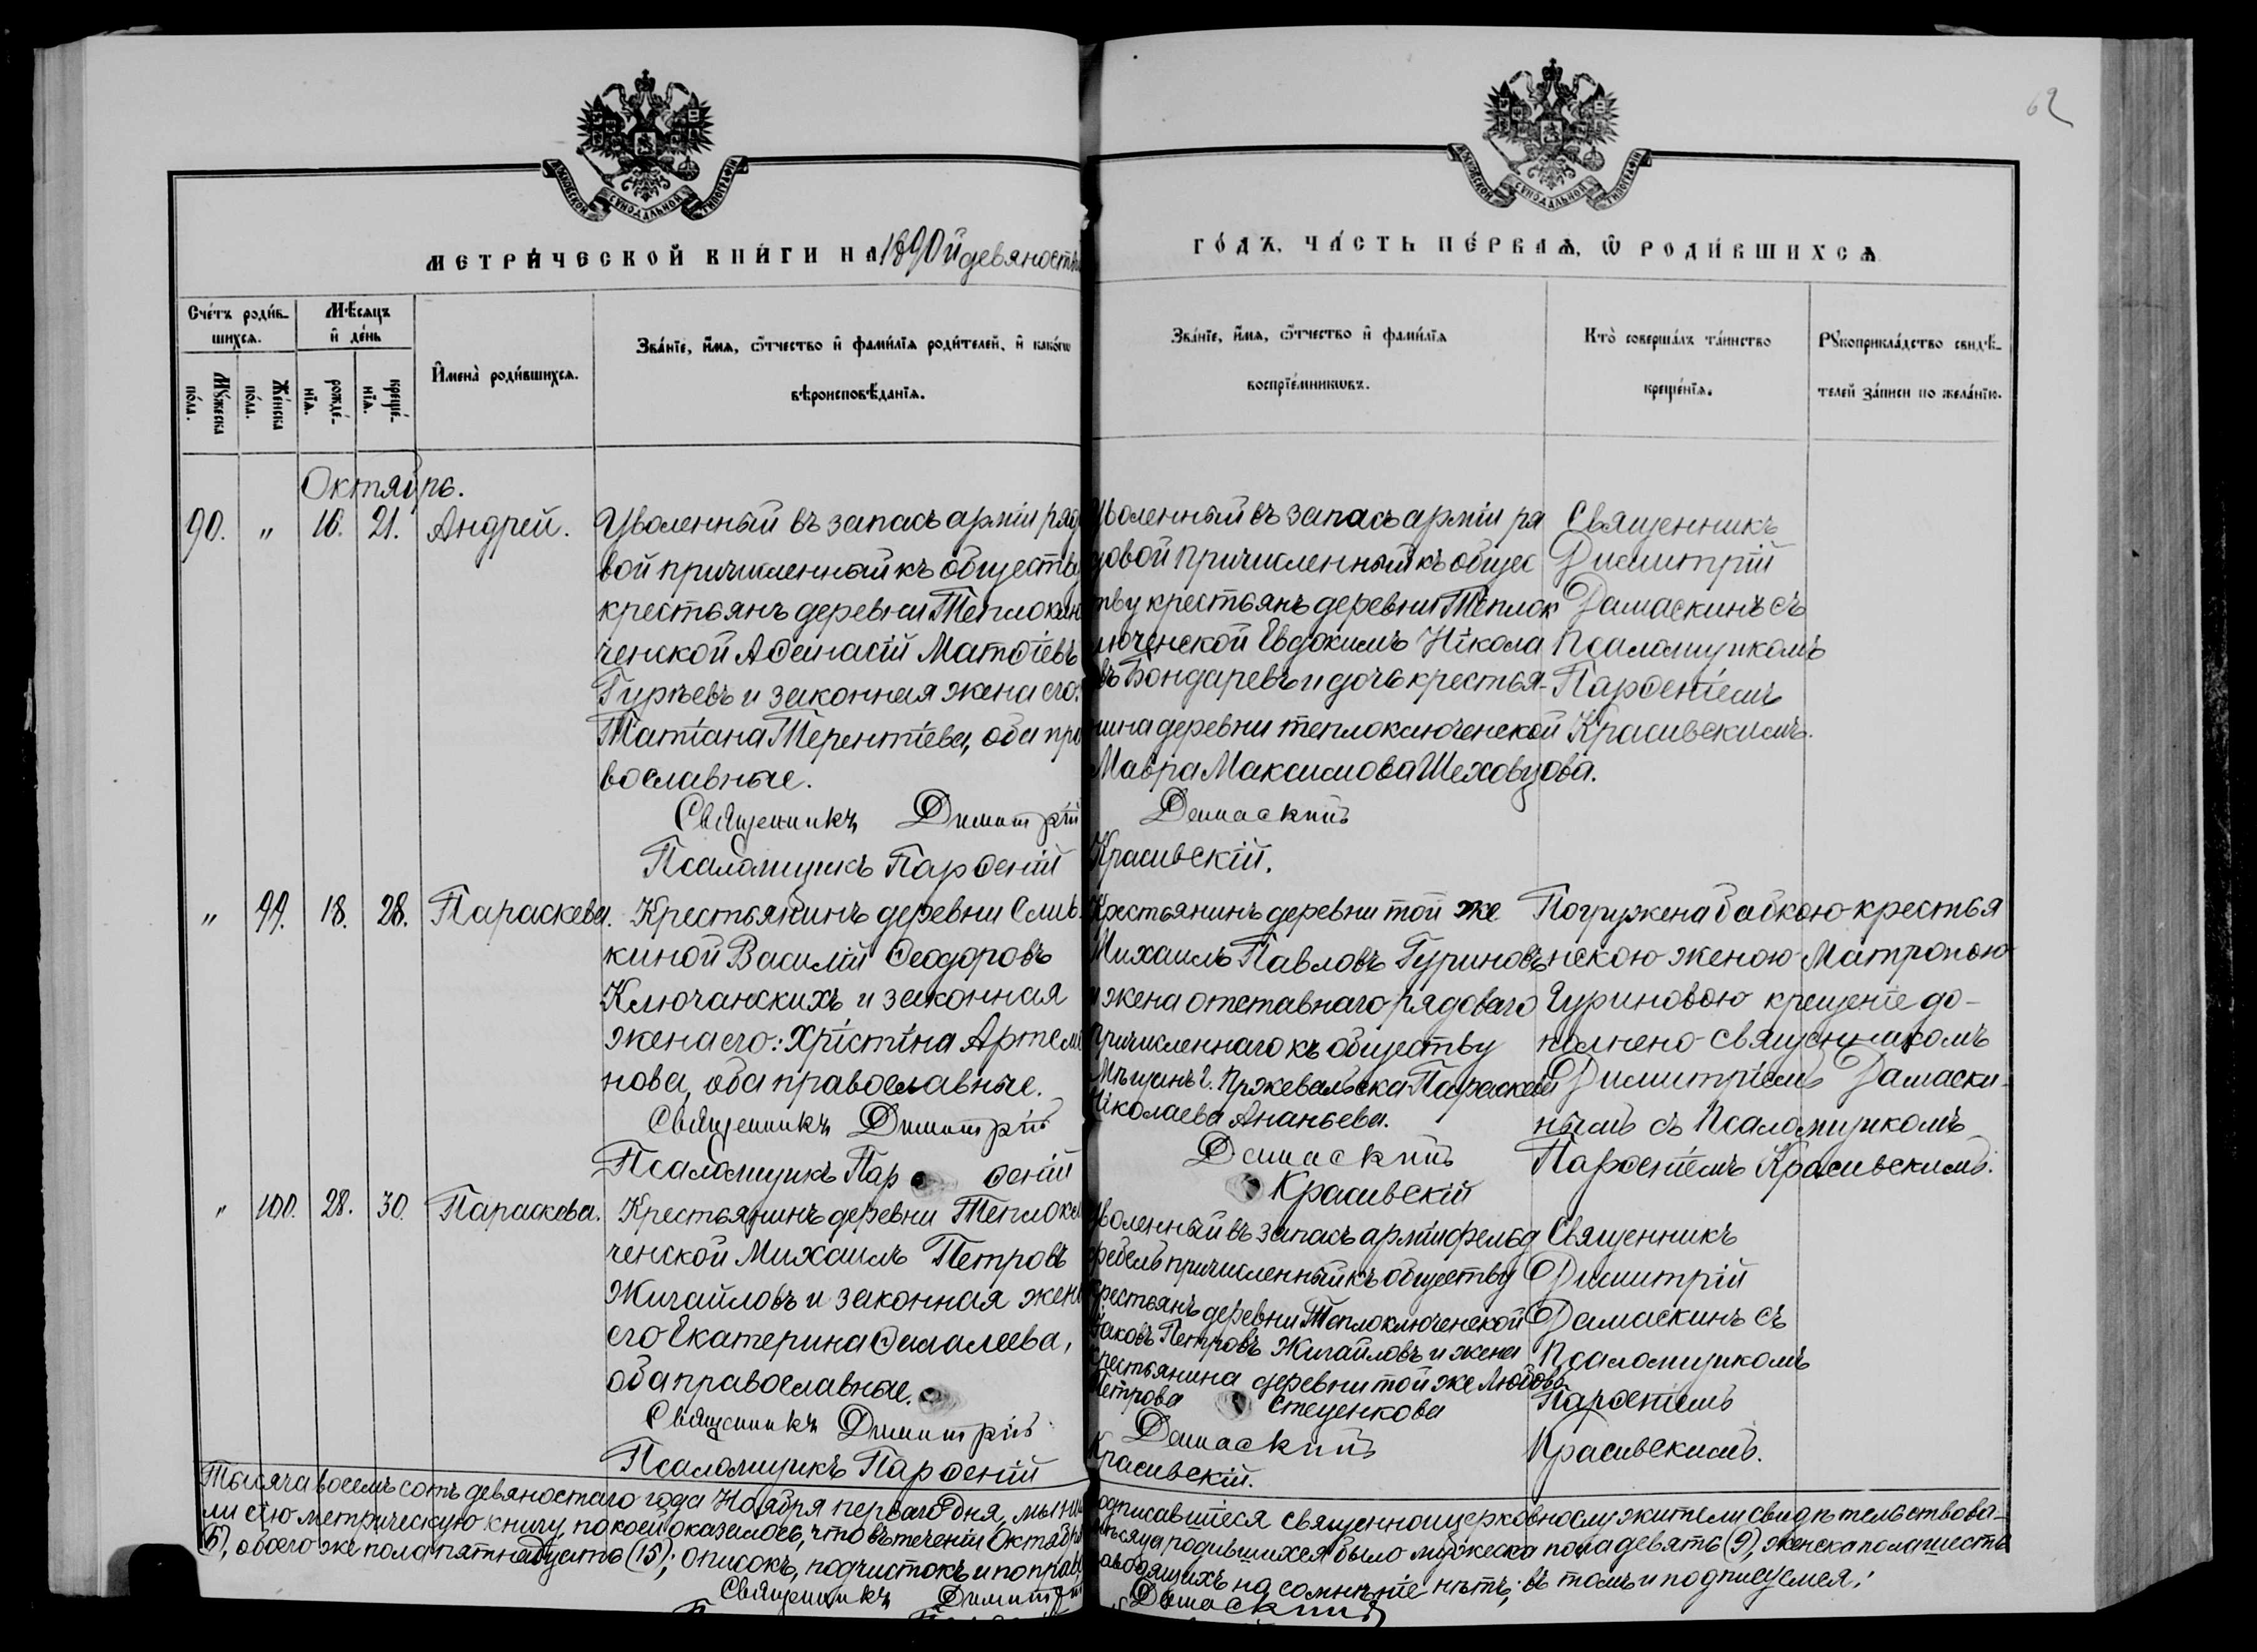 62
МОСКОВСКОЙ СѴНОДАЛЬНОЙ ТИПОГРАФІИ
МОСКОВСКОЙ СѴНОДАЛЬНОЙ ТИПОГРАФІИ
МЕТРИЧЕСКОЙ КНИГИ НА 1890й девяносты
ГОДЪ, ЧАСТЬ ПЕРВАѦ, Ѡ РОДИВШИХСѦ
Счетъ родив-
шихсѧ.
Мужеска
пола.
Женска
пола.
Мѣсяцъ
и день
рожде-
нїѧ.
креще-
нїѧ.
Имена родившихсѧ.
Званїе, имѧ, ѻтчество и фамилїѧ родителей, и какогѡ
вѣроисповѣданїѧ.
Званїе, имѧ, ѻтчество и фамилїѧ
воспрїемникѡвъ.
Кто совершалъ таинство
крещенїѧ.
Рꙋкоприкладство свидѣ-
телей записи по желанїю.
Октябрь.
90. " 16. 21. Андрей.
Уволенный въ запасъ арміи ряд
вой причисленный къ обществу
крестьянъ деревни Теплоклю
ченской Аѳанасій Матѳіевъ
Гурьевъ и законная жена его:
Татіана Терентіева, оба пра
вославные.
Священникъ Димитрій
Псаломщикъ Парѳеній
Уволенный въ запасъ арміи ря
довой причисленный къ общес
тву крестьянъ деревни Теплок
люченской Евдокимъ Никола
въ Бондаревъ и дочь крестья-
нина деревни теплоключенской
Мавра Максимова Шеховцова.
Дамаскинъ
Красивскій.
Священникъ
Димитрій
Дамаскинъ съ
Псаломщикомъ
Парѳеніемъ
Красивскимъ.
" 99. 18. 28. Параскева.
Крестьянинъ деревни
киной Василій Ѳеодоровъ
Ключанскихъ и законная
жена его: Хрістіна Артемо
нова, оба православные.
Священникъ Димитрій
Псаломщикъ Пар ѳеній
Крестьянинъ деревни той же
Михаилъ Павловъ Гуриновъ
и жена отставнаго рядоваго
причисленнаго къ обществу
Мѣщанъ г. Пржевальска Параскева
Николаева Ананьева.
Дамаскинъ
Красивскій
Погружена бабкою крестья
нскою женою Матроною
Гуриновою крещеніе до-
полнено священникомъ
Димитріемъ Дамаски-
нымъ съ Псаломщикомъ
Парѳеніемъ Красивскимъ.
" 100. 28. 30. Параскева.
Крестьянинъ деревни Теплоклю
ченской Михаилъ Петровъ
Жигайловъ и законная жена
его Екатерина Ѳалалеева,
оба православные.
Священникъ Димитрій
Псаломщикъ Парѳеній
Уволенный въ запасъ арміи фельд
фебель причисленный къ обществу
крестьянъ деревни Теплоключенской
Іаковъ Петровъ Жигайловъ и жена
крестьянина деревни той же Любовь
Петрова Стеценкова
Дамаскинъ
Красивскій.
Священникъ
Димитрій
Дамаскинъ съ
Псаломщикомъ
Парѳеніемъ
Красивскимъ.
Тысяча восемь сотъ девяностаго года Ноября перваго дня, мы ниже подписавшіеся священноцерковнослужители свидѣтельствова-
ли сію метрическую книгу, по коей оказалось, что въ теченіи Октября мѣсяца родившихся было мужеска пола девять (9), женска пола шесть
(6), обоего же пола пятнадцать (15); описокъ, подчистокъ и поправ наводящихъ на сомнѣніе нѣтъ; въ томъ и подписуемся:
Священникъ Димитрій Дамаскинъ